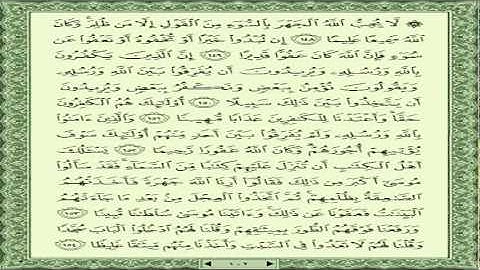 لَا يُحِبُّ اللَّهُ الْجَهْرَ بِالسُّوءِ مِنَ الْقَوْلِ إِلَّا مَن ظُلِمَ وَكَانَ
اللَّهُ سَمِيعًا عَلِيمًا ١٤٨ إِن تُبْدُوا خَيْرًا أَوْ تُخْفُوهُ أَوْ تَعْفُوا عَن
سُوءٍ فَإِنَّ اللَّهَ كَانَ عَفُوًّا قَدِيرًا ١٤٩ إِنَّ الَّذِينَ يَكْفُرُونَ
بِاللَّهِ وَرُسُلِهِ وَيُرِيدُونَ أَن يُفَرِّقُوا بَيْنَ اللَّهِ وَرُسُلِهِ
وَيَقُولُونَ نُؤْمِنُ بِبَعْضٍ وَنَكْفُرُ بِبَعْضٍ وَيُرِيدُونَ
أَن يَتَّخِذُوا بَيْنَ ذَٰلِكَ سَبِيلًا ١٥٠ أُولَٰئِكَ هُمُ الْكَافِرُونَ
حَقًّا وَأَعْتَدْنَا لِلْكَافِرِينَ عَذَابًا مُّهِينًا ١٥١ وَالَّذِينَ آمَنُوا
بِاللَّهِ وَرُسُلِهِ وَلَمْ يُفَرِّقُوا بَيْنَ أَحَدٍ مِّنْهُمْ أُولَٰئِكَ سَوْفَ
يُؤْتِيهِمْ أُجُورَهُمْ وَكَانَ اللَّهُ غَفُورًا رَّحِيمًا ١٥٢ يَسْأَلُكَ
أَهْلُ الْكِتَابِ أَن تُنَزِّلَ عَلَيْهِمْ كِتَابًا مِّنَ السَّمَاءِ فَقَدْ سَأَلُوا
مُوسَىٰ أَكْبَرَ مِن ذَٰلِكَ فَقَالُوا أَرِنَا اللَّهَ جَهْرَةً فَأَخَذَتْهُمُ
الصَّاعِقَةُ بِظُلْمِهِمْ ثُمَّ اتَّخَذُوا الْعِجْلَ مِن بَعْدِ مَا جَاءَتْهُمُ
الْبَيِّنَاتُ فَعَفَوْنَا عَن ذَٰلِكَ وَآتَيْنَا مُوسَىٰ سُلْطَانًا مُّبِينًا ١٥٣
وَرَفَعْنَا فَوْقَهُمُ الطُّورَ بِمِيثَاقِهِمْ وَقُلْنَا لَهُمُ ادْخُلُوا الْبَابَ سُجَّدًا
وَقُلْنَا لَهُمْ لَا تَعْدُوا فِي السَّبْتِ وَأَخَذْنَا مِنْهُم مِّيثَاقًا غَلِيظًا ١٥٤
١٠٢